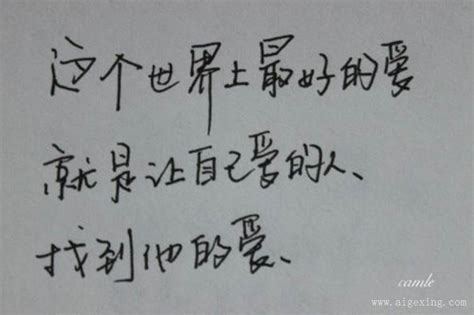 这个世界上最好的爱
就是让自己爱的人、
找到他的爱、
camle
www.aigexing.com